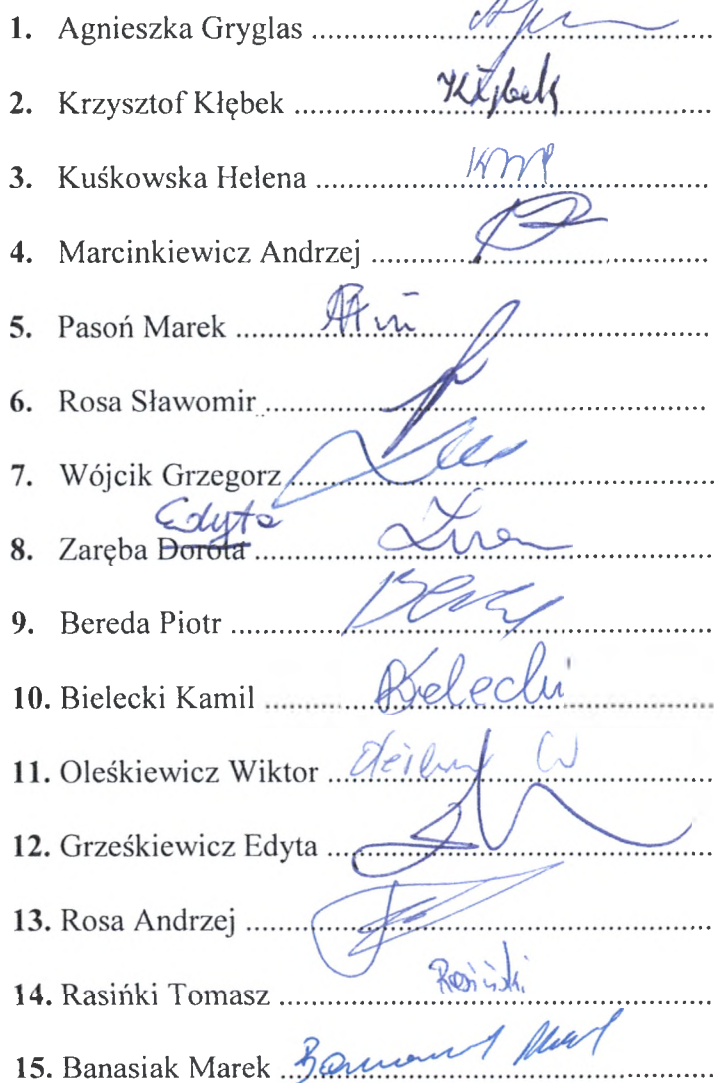 1. Agnieszka Gryglas ..........................................................
2. Krzysztof Kłębek .......... Kłębek ..........
3. Kuśkowska Helena ..........................................................
4. Marcinkiewicz Andrzej ..........................................................
5. Pasoń Marek ..........................................................
6. Rosa Sławomir ..........................................................
7. Wójcik Grzegorz ..........................................................
Edyta
8. Zaręba Dorota ..........................................................
9. Bereda Piotr ..........................................................
10. Bielecki Kamil .......... Bielecki ..........
11. Oleśkiewicz Wiktor ..........................................................
12. Grześkiewicz Edyta ..........................................................
13. Rosa Andrzej ..........................................................
14. Rasińki Tomasz .......... Rasiński ..........
15. Banasiak Marek ..........................................................